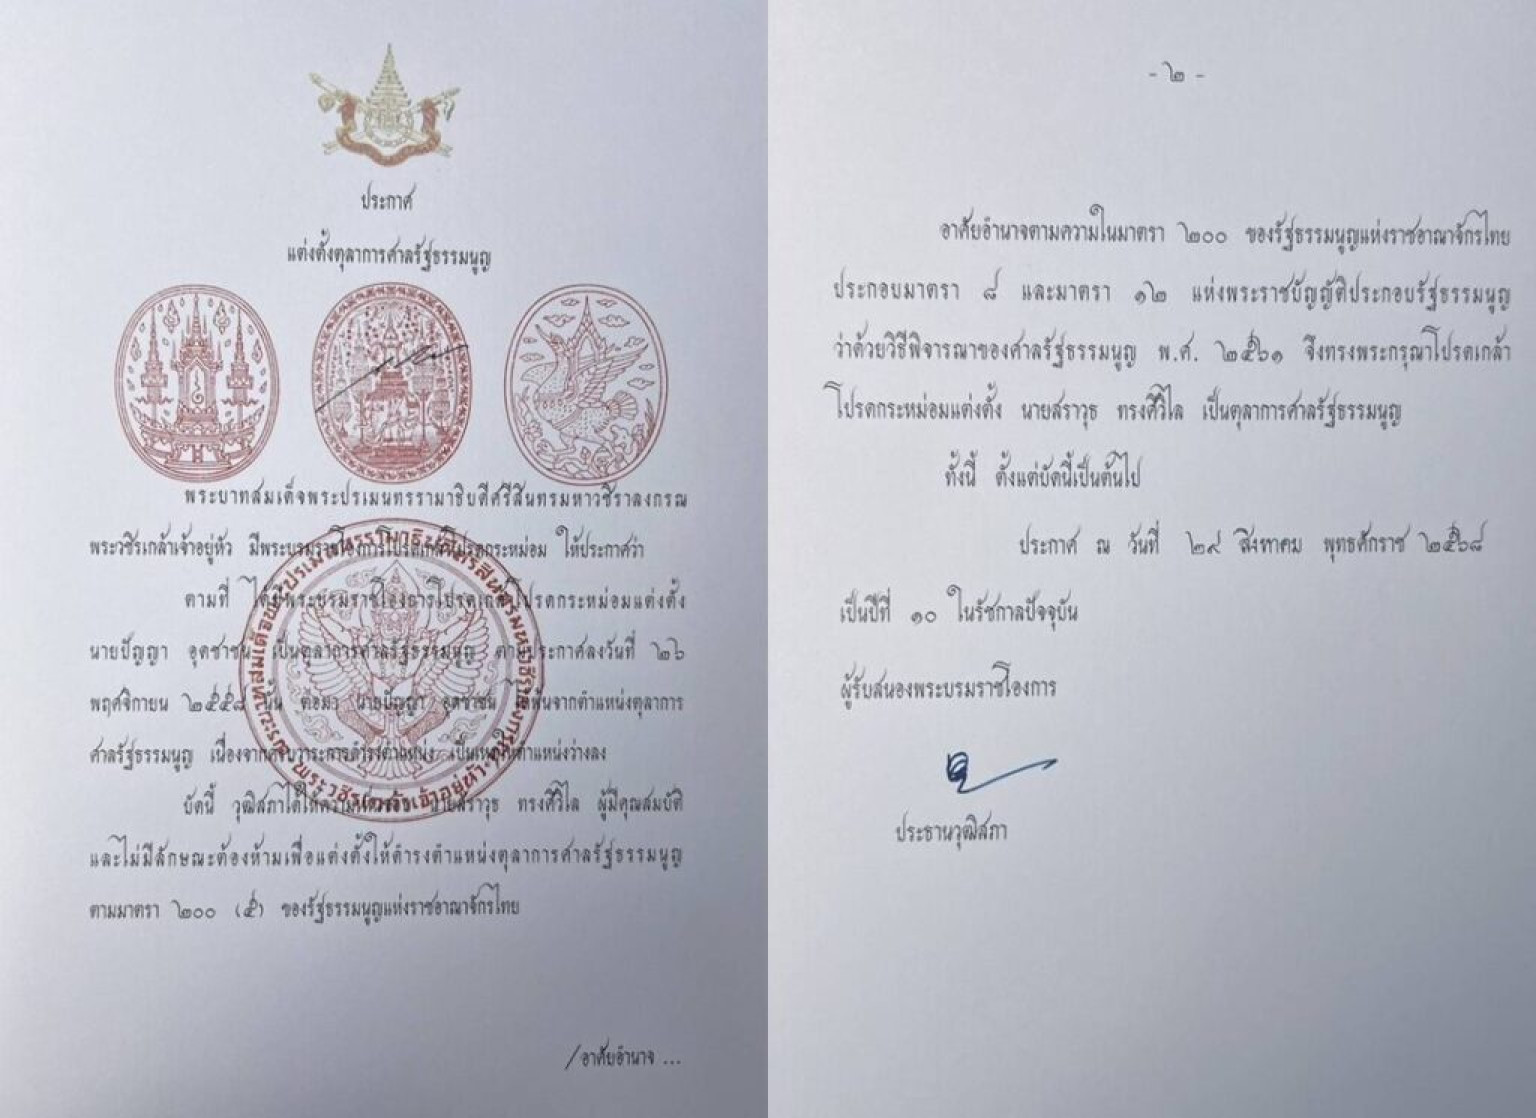 ประกาศ
แต่งตั้งตุลาการศาลรัฐธรรมนูญ
พระบาทสมเด็จพระปรเมนทรรามาธิบดีศรีสินทรมหาวชิราลงกรณ
พระวชิรเกล้าเจ้าอยู่หัว มีพระบรมราชโองการโปรดเกล้าโปรดกระหม่อม ให้ประกาศว่า
ตามที่ ได้มีพระบรมราชโองการโปรดเกล้าโปรดกระหม่อมแต่งตั้ง
นายปัญญา อุดชาชน เป็นตุลาการศาลรัฐธรรมนูญ ตามประกาศลงวันที่ ๒๖
พฤศจิกายน ๒๕๕๘ นั้น ต่อมา นายปัญญา อุดชาชน ได้พ้นจากตำแหน่งตุลาการ
ศาลรัฐธรรมนูญ เนื่องจากครบวาระการดำรงตำแหน่ง เป็นเหตุให้ตำแหน่งว่างลง
บัดนี้ วุฒิสภาได้ให้ความเห็นชอบ นายสราวุธ ทรงศิวิไล ผู้มีคุณสมบัติ
และไม่มีลักษณะต้องห้ามเพื่อแต่งตั้งให้ดำรงตำแหน่งตุลาการศาลรัฐธรรมนูญ
ตามมาตรา ๒๐๐ (๕) ของรัฐธรรมนูญแห่งราชอาณาจักรไทย
/อาศัยอำนาจ ...
พระบาทสมเด็จพระปรเมนทรรามาธิบดีศรีสินทรมหาวชิราลงกรณ พระวชิรเกล้าเจ้าอยู่หัว
- ๒ -
อาศัยอำนาจตามความในมาตรา ๒๐๐ ของรัฐธรรมนูญแห่งราชอาณาจักรไทย
ประกอบมาตรา ๘ และมาตรา ๑๒ แห่งพระราชบัญญัติประกอบรัฐธรรมนูญ
ว่าด้วยวิธีพิจารณาของศาลรัฐธรรมนูญ พ.ศ. ๒๕๖๑ จึงทรงพระกรุณาโปรดเกล้า
โปรดกระหม่อมแต่งตั้ง นายสราวุธ ทรงศิวิไล เป็นตุลาการศาลรัฐธรรมนูญ
ทั้งนี้ ตั้งแต่บัดนี้เป็นต้นไป
ประกาศ ณ วันที่ ๒๙ สิงหาคม พุทธศักราช ๒๕๖๘
เป็นปีที่ ๑๐ ในรัชกาลปัจจุบัน
ผู้รับสนองพระบรมราชโองการ
ประธานวุฒิสภา